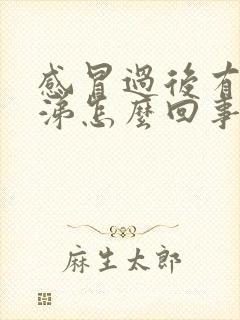 感冒過後有
涕怎麼回事
麻生太郎